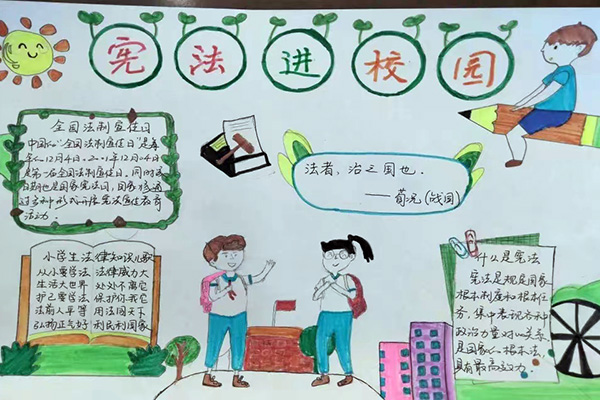 宪法进校园
全国法制宣传日
中国的"全国法制宣传日"是每
年12月4日。2001年12月04日
是第一个全国法制宣传日。同时该
日期也是国家宪法日，国家将通
过多种形式开展宪法宣传教育
活动。
法者，治之国也。
——荀况(战国)
小学生法律知识儿歌
从小要学法 法律威力大
生活大世界 处处不离它
护己要学法 保护你我它
法前人平等 用法图天下
弘扬正气好 利民利国家
什么是宪法
宪法是规定国家
根本制度和根本任
务，集中表现各种
政治力量对比关系，
是国家的根本法，
具有最高效力。